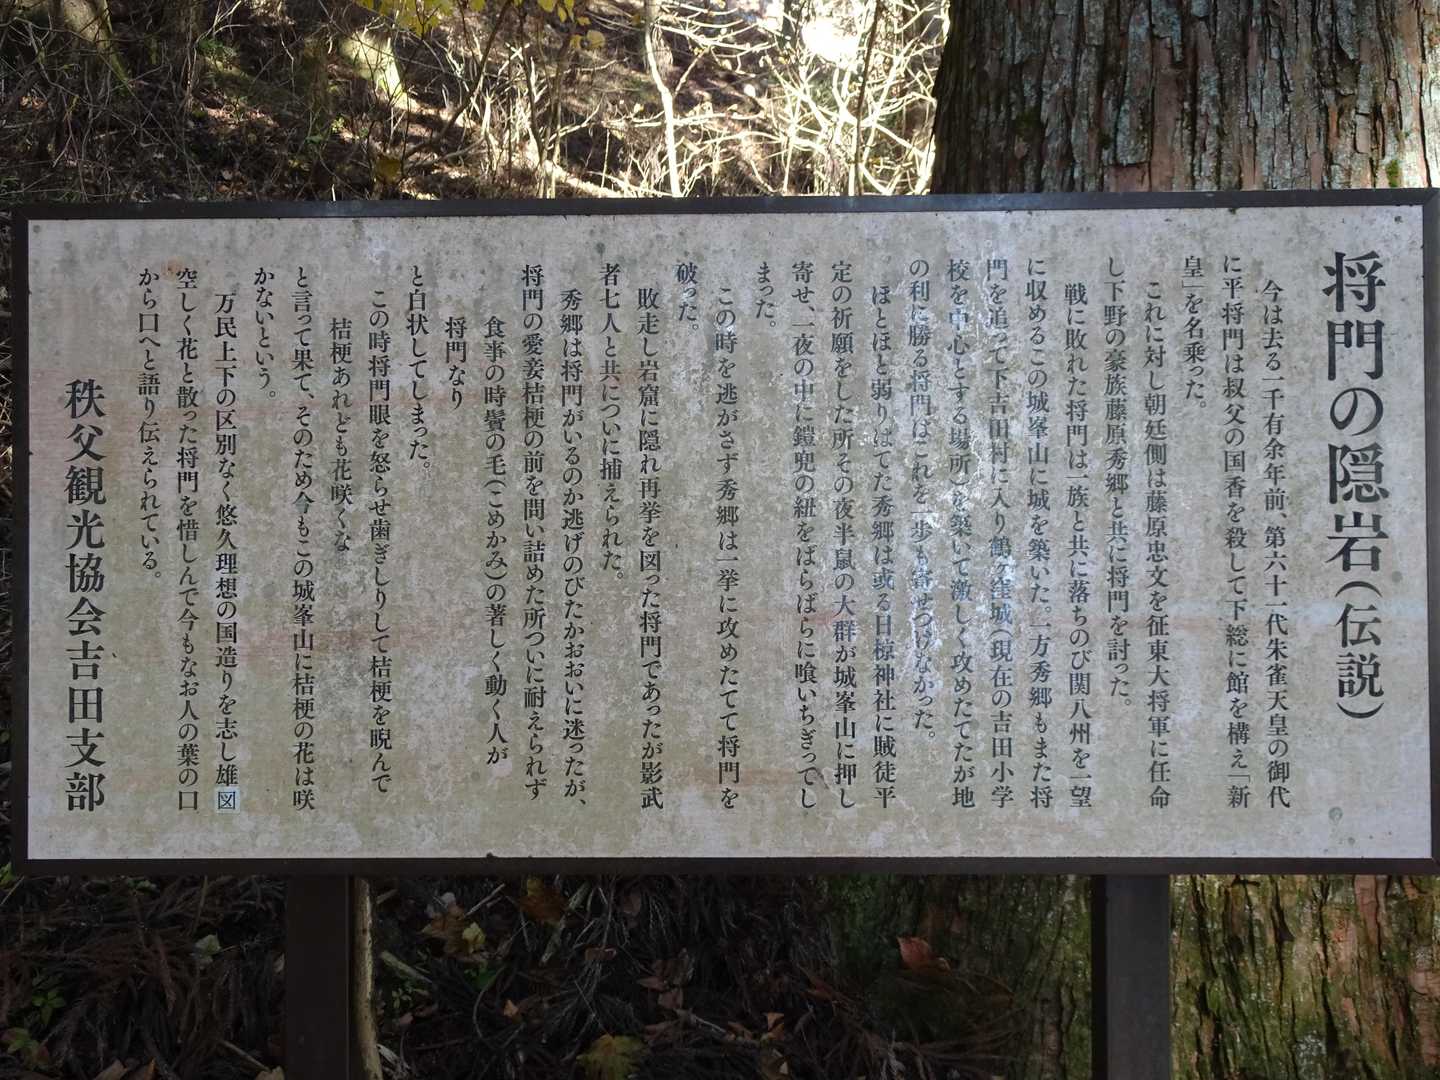 将門の隠岩（伝説）
今は去る一千有余年前、第六十一代朱雀天皇の御代
に平将門は叔父の国香を殺して下総に館を構え「新
皇」を名乗った。
これに対し朝廷側は藤原忠文を征東大将軍に任命
し下野の豪族藤原秀郷と共に将門を討った。
戦に敗れた将門は一族と共に落ちのび関八州を一望
に収めるこの城峯山に城を築いた。一方秀郷もまた将
門を追って下吉田村に入り鶴ヶ窪城（現在の吉田小学
校を中心とする場所）を築いて激しく攻めたてたが地
の利に勝る将門はこれを一歩も寄せつけなかった。
ほとほと弱りはてた秀郷は或る日椋神社に賊徒平
定の祈願をした所その夜半鼠の大群が城峯山に押し
寄せ、一夜の中に鎧兜の紐をばらばらに喰いちぎってし
まった。
この時を逃がさず秀郷は一挙に攻めたてて将門を
破った。
敗走し岩窟に隠れ再挙を図った将門であったが影武
者七人と共についに捕えられた。
秀郷は将門がいるのか逃げのびたかおおいに迷ったが、
将門の愛妾桔梗の前を問い詰めた所ついに耐えられず
食事の時鬢の毛（こめかみ）の著しく動く人が
将門なり
と白状してしまった。
この時将門眼を怒らせ歯ぎしりして桔梗を睨んで
桔梗あれども花咲くな
と言って果て、そのため今もこの城峯山に桔梗の花は咲
かないという。
万民上下の区別なく悠久理想の国造りを志し雄図
空しく花と散った将門を惜しんで今もなお人の葉の口
から口へと語り伝えられている。
秩父観光協会吉田支部